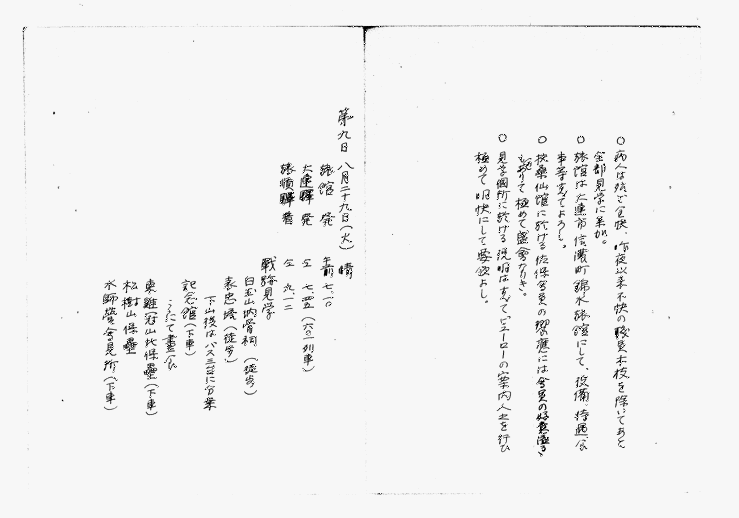 ○ 病人は殆ど全快、昨夜以来不快の職員木枝を除いてあと
全部見学に参加。
○ 旅館は大連市信濃町錦水旅館にして、設備、待遇、食
事等すべてよろし。
○ 扶桑仙館に於ける佐保会員の饗應には会員の好意溢るゝ
ありて極めて盛會なりき。
○ 見学個所に於ける説明はすべてビューローの案内人之を行ひ
極めて明快にして要領よし。
第九日 八月二十九日(火) 晴
旅館 発 午前 七.一〇
大連驛 発 〃 七.五五(六〇一列車)
旅順驛 着 〃 九.一二
戰跡見学
白玉山納骨祠(徒歩)
表忠塔(徒歩)
下山後はバス三台に分乗
記念館(下車)
こゝにて晝食
東雞冠山北堡壘(下車)
松樹山堡壘
水師營會見所(下車)